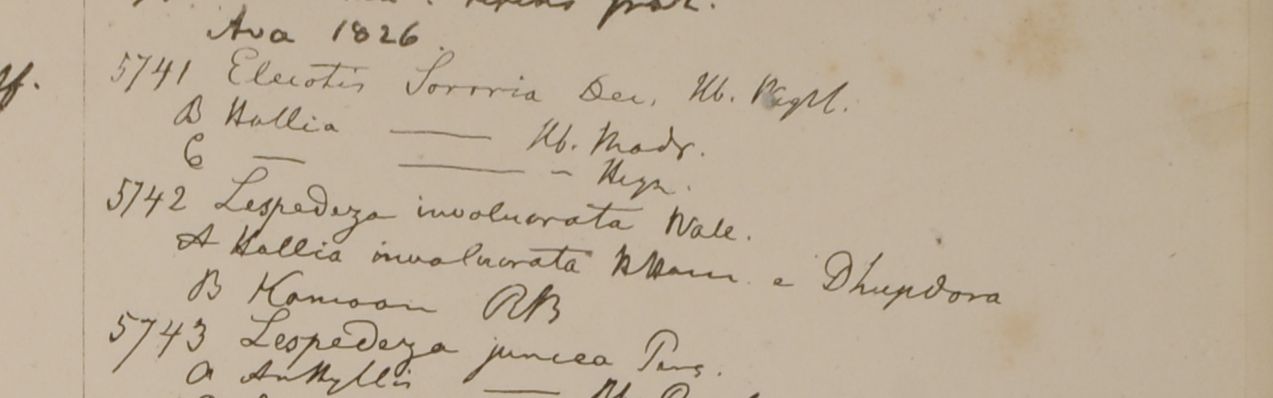 Ava 1826.
5741 Eleiotis Sororia Dec. Hb. Wight.
B Hallia —— Hb. Madr.
C — —— - Heyn.
5742 Lespedeza involucrata Wall.
A Hallia involucrata HHam. e Dhupdora
B Kamoon RB
5743 Lespedeza juncea Pers.
a Anthyllis ——